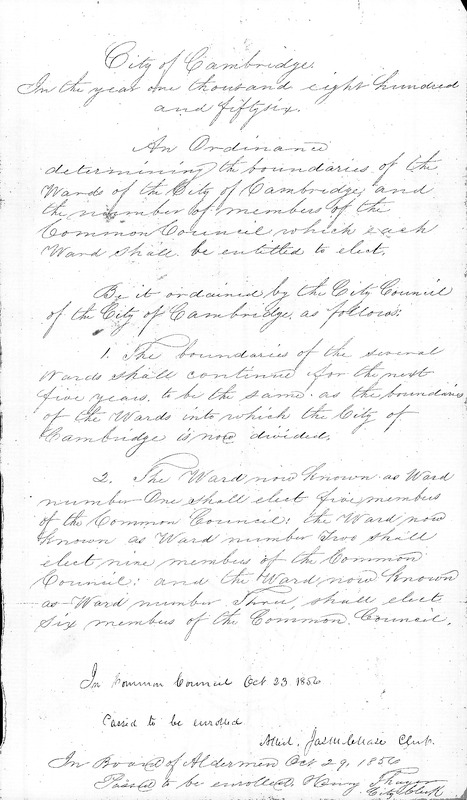 City of Cambridge.
In the year one thousand eight hundred
and fiftysix.
An Ordinance
determining the boundaries of the
Wards of the City of Cambridge, and
the number of members of the
Common Council which each
Ward shall be entitled to elect.
Be it ordained by the City Council
of the City of Cambridge, as follows:
1. The boundaries of the several
Wards shall continue for the next
five years, to be the same as the boundaries
of the Wards into which the City of
Cambridge is now divided.
2. The Ward now known as Ward
number One shall elect five members
of the Common Council: the Ward now
known as Ward number Two shall
elect nine members of the Common
Council: and the Ward now known
as Ward number Three, shall elect
six members of the Common Council.
In Common Council Oct 23. 1856
Passed to be enrolled
Attest, Jas M. Chase Clerk.
In Board of Aldermen Oct 29, 1856
Passed to be enrolled, Henry Thayer
City Clerk